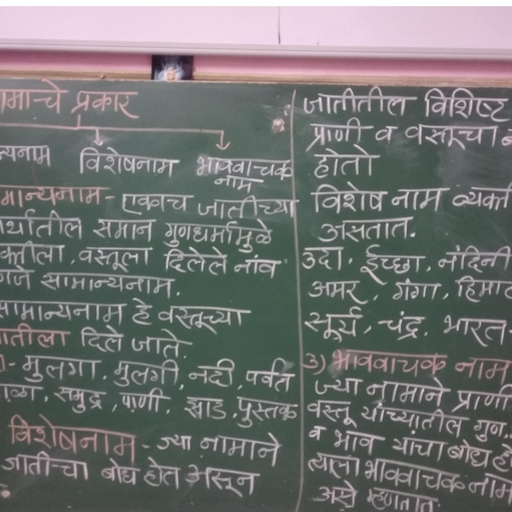 नामाचे प्रकार
न्यनाम विशेषनाम भाववाचक नाम
मान्यनाम - एकाच जातीच्या
र्थातील समान गुणधर्मामुळे
क्तीला, वस्तूला दिलेले नांव
णजे सामान्यनाम.
सामान्यनाम हे वस्तूच्या
जातीला दिले जाते.
- मुलगा, मुलगी, नदी, पर्वत
ळा, समुद्र, पाणी, झाड, पुस्तक
विशेषनाम - ज्या नामाने
जातीचा बोध होत असून
जातीतील विशिष्ट
प्राणी व वस्तूचा
होतो
विशेष नाम व्यक्ती
असतात.
उदा. ईच्छा, नंदिनी
अमर, गंगा, हिमा
सूर्य, चंद्र, भारत
३) भाववाचक नाम
ज्या नामाने प्राणी
वस्तू यांच्यातील गुण,
व भाव यांचा बोध हो
त्याला भाववाचक नाम
असे म्हणतात